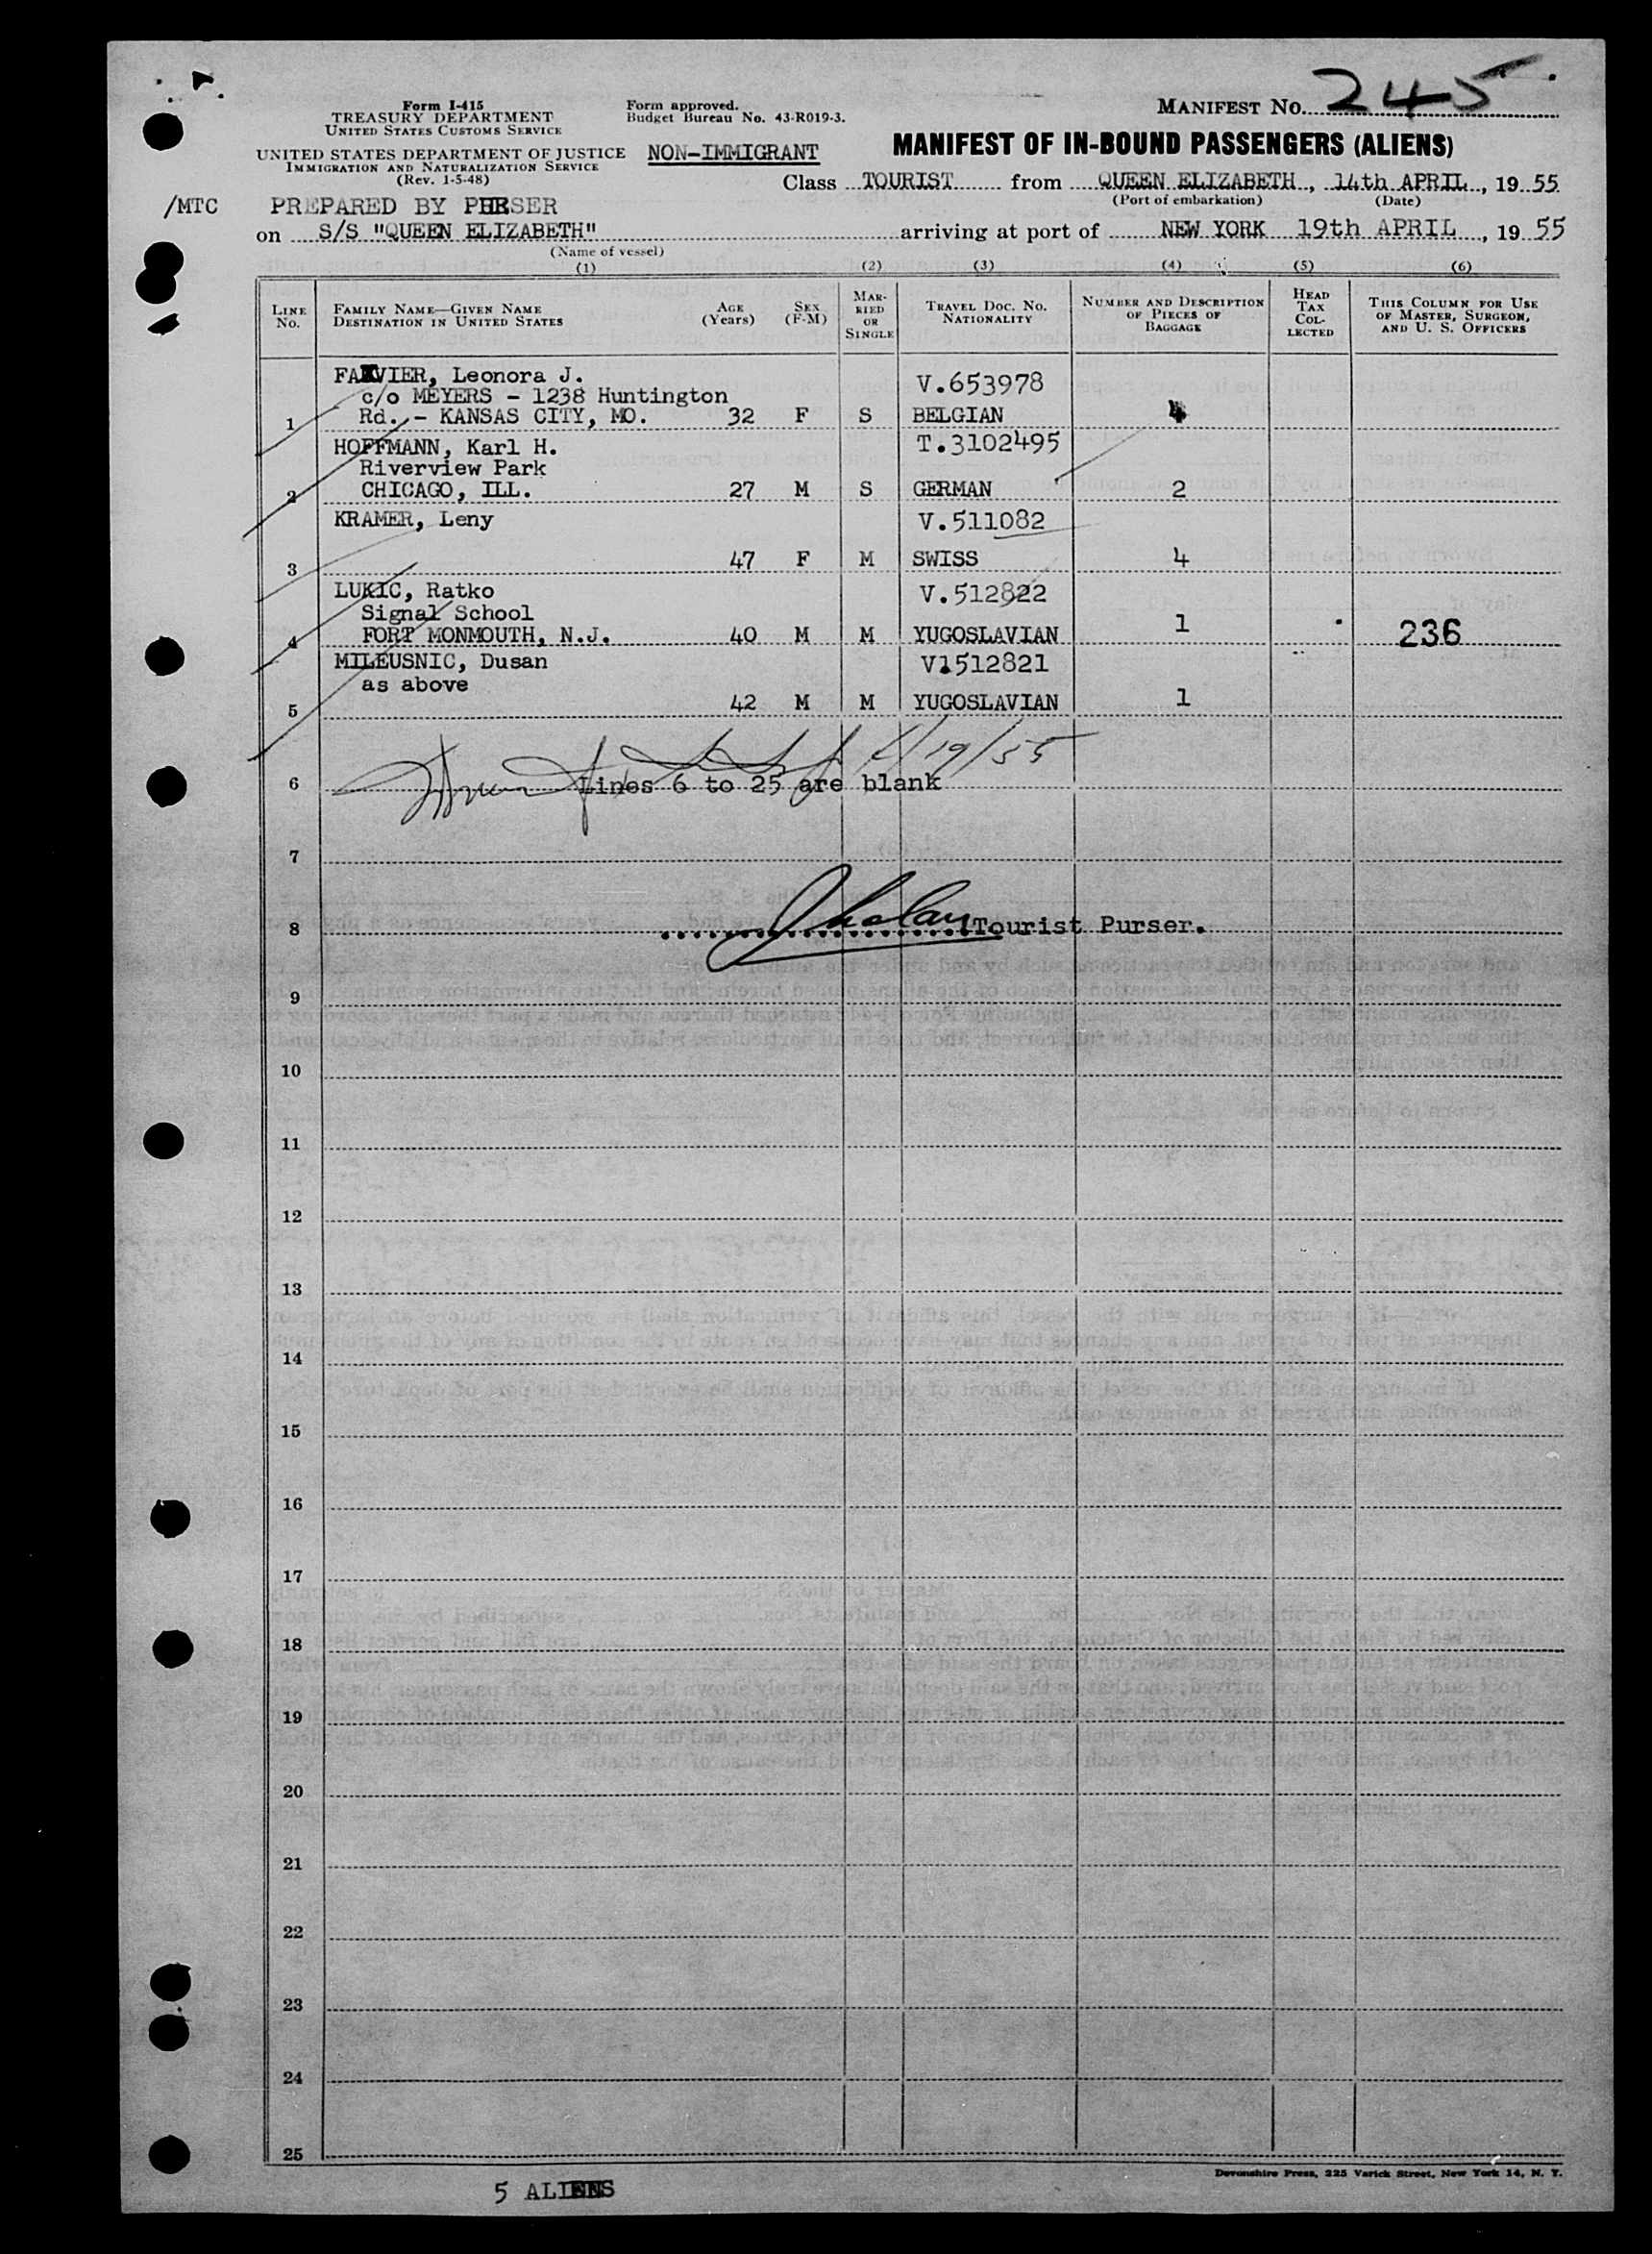 MANIFEST No. 245
Form I-415
TREASURY DEPARTMENT
UNITED STATES CUSTOMS SERVICE
Form approved.
Budget Bureau No. 43-R019-3.
UNITED STATES DEPARTMENT OF JUSTICE
IMMIGRATION AND NATURALIZATION SERVICE
(Rev. 1-5-48)
NON-IMMIGRANT
MANIFEST OF IN-BOUND PASSENGERS (ALIENS)
Class TOURIST from QUEEN ELIZABETH, 14th APRIL, 19 55
(Port of embarkation) (Date)
/MTC PREPARED BY PURSER
on S/S "QUEEN ELIZABETH" arriving at port of NEW YORK 19th APRIL, 19 55
(Name of vessel)
(1) (2) (3) (4) (5) (6)
LINE No. FAMILY NAME—GIVEN NAME DESTINATION IN UNITED STATES AGE (Years) SEX (F-M) MARRIED OR SINGLE TRAVEL DOC. NO. NATIONALITY NUMBER AND DESCRIPTION OF PIECES OF BAGGAGE HEAD TAX COLLECTED THIS COLUMN FOR USE OF MASTER, SURGEON, AND U. S. OFFICERS
FAVIER, Leonora J. V.653978
c/o MEYERS - 1238 Huntington
1 Rd. - KANSAS CITY, MO. 32 F S BELGIAN 4
HOFFMANN, Karl H. T.3102495
Riverview Park
2 CHICAGO, ILL. 27 M S GERMAN 2
KRAMER, Leny V.511082
3 47 F M SWISS 4
LUKIC, Ratko V.512822
Signal School
4 FORT MONMOUTH, N.J. 40 M M YUGOSLAVIAN 1 236
MILEUSNIC, Dusan V1512821
as above
5 42 M M YUGOSLAVIAN 1
4/19/55
6 Lines 6 to 25 are blank
7
8 Tourist Purser.
9
10
11
12
13
14
15
16
17
18
19
20
21
22
23
24
25
Devonshire Press, 225 Varick Street, New York 14, N. Y.
5 ALIENS